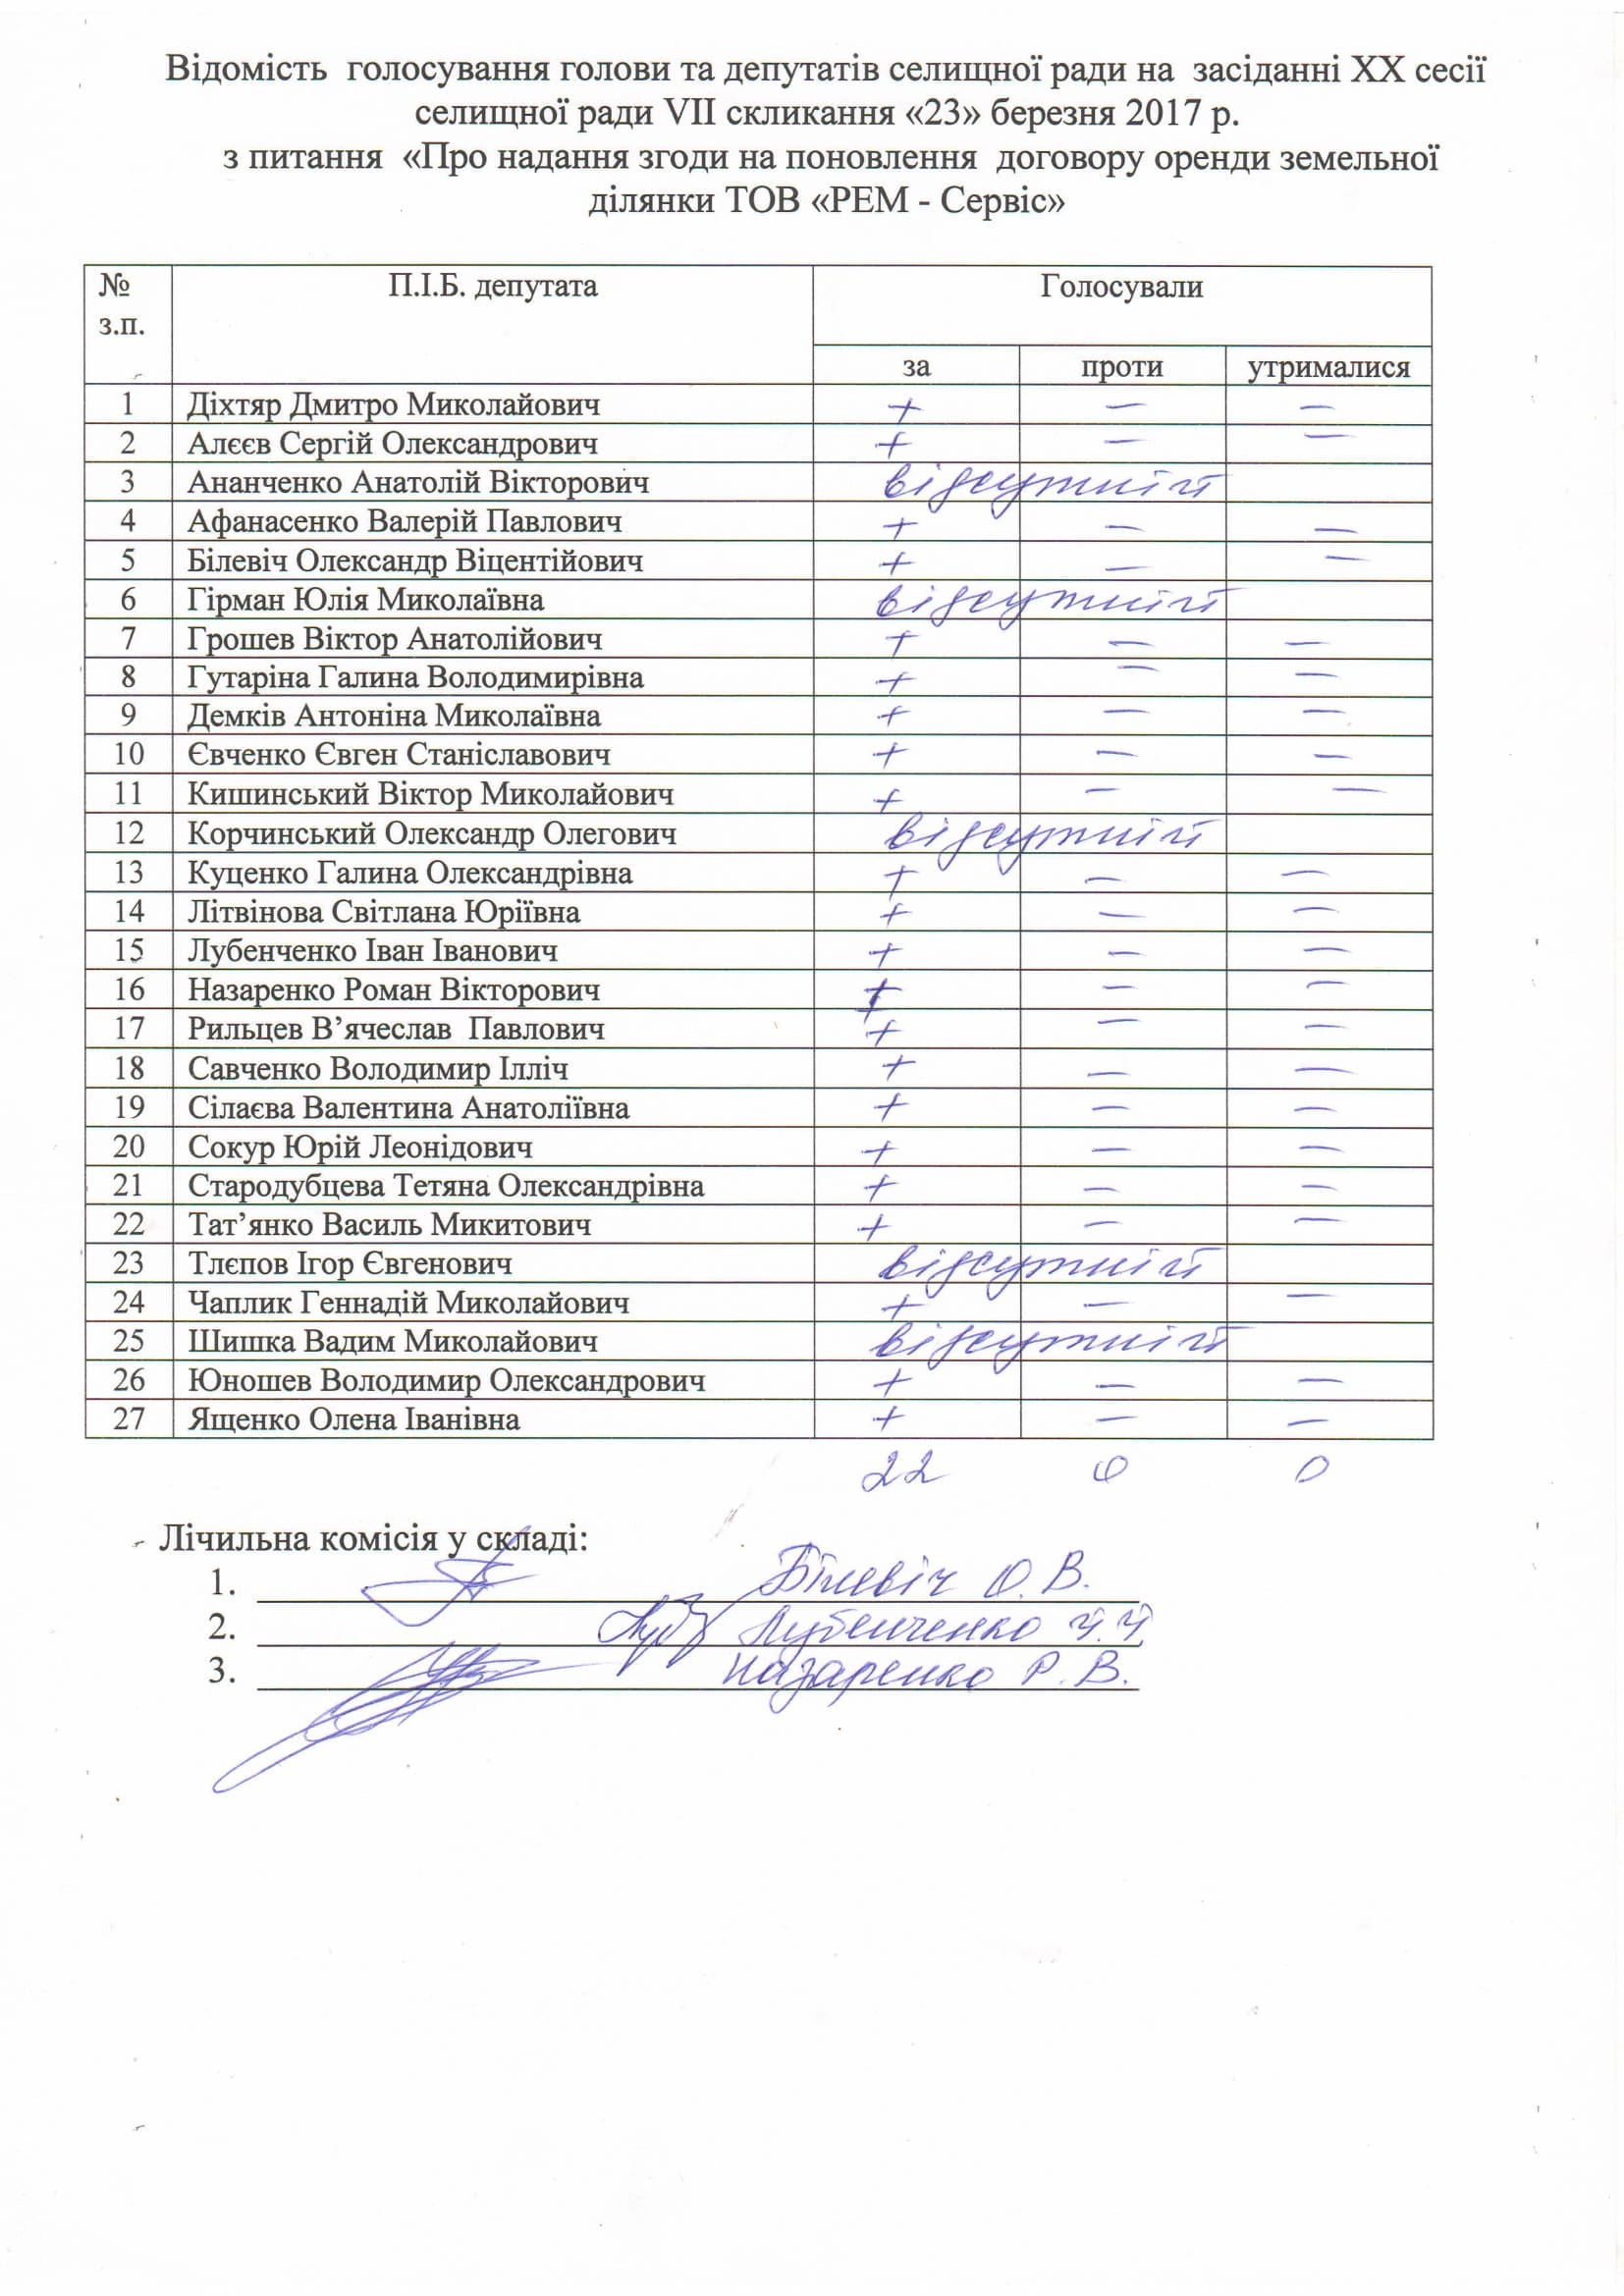 Відомість голосування голови та депутатів селищної ради на засіданні ХХ сесії
селищної ради VII скликання «23» березня 2017 р.
з питання «Про надання згоди на поновлення договору оренди земельної
ділянки ТОВ «РЕМ - Сервіс»
№ з.п. П.І.Б. депутата Голосували
за проти утрималися
1 Діхтяр Дмитро Миколайович + — —
2 Алєєв Сергій Олександрович + — —
3 Ананченко Анатолій Вікторович відсутній
4 Афанасенко Валерій Павлович + — —
5 Білевіч Олександр Віцентійович + — —
6 Гірман Юлія Миколаївна відсутній
7 Грошев Віктор Анатолійович + — —
8 Гутаріна Галина Володимирівна + — —
9 Демків Антоніна Миколаївна + — —
10 Євченко Євген Станіславович + — —
11 Кишинський Віктор Миколайович + — —
12 Корчинський Олександр Олегович відсутній
13 Куценко Галина Олександрівна + — —
14 Літвінова Світлана Юріївна + — —
15 Лубенченко Іван Іванович + — —
16 Назаренко Роман Вікторович + — —
17 Рильцев В’ячеслав Павлович + — —
18 Савченко Володимир Ілліч + — —
19 Сілаєва Валентина Анатоліївна + — —
20 Сокур Юрій Леонідович + — —
21 Стародубцева Тетяна Олександрівна + — —
22 Тат’янко Василь Микитович + — —
23 Тлєпов Ігор Євгенович відсутній
24 Чаплик Геннадій Миколайович + — —
25 Шишка Вадим Миколайович відсутній
26 Юношев Володимир Олександрович + — —
27 Ященко Олена Іванівна + — —
22 0 0
Лічильна комісія у складі:
1. Білевіч О. В.
2. Лубенченко І.І.
3. Назаренко Р. В.